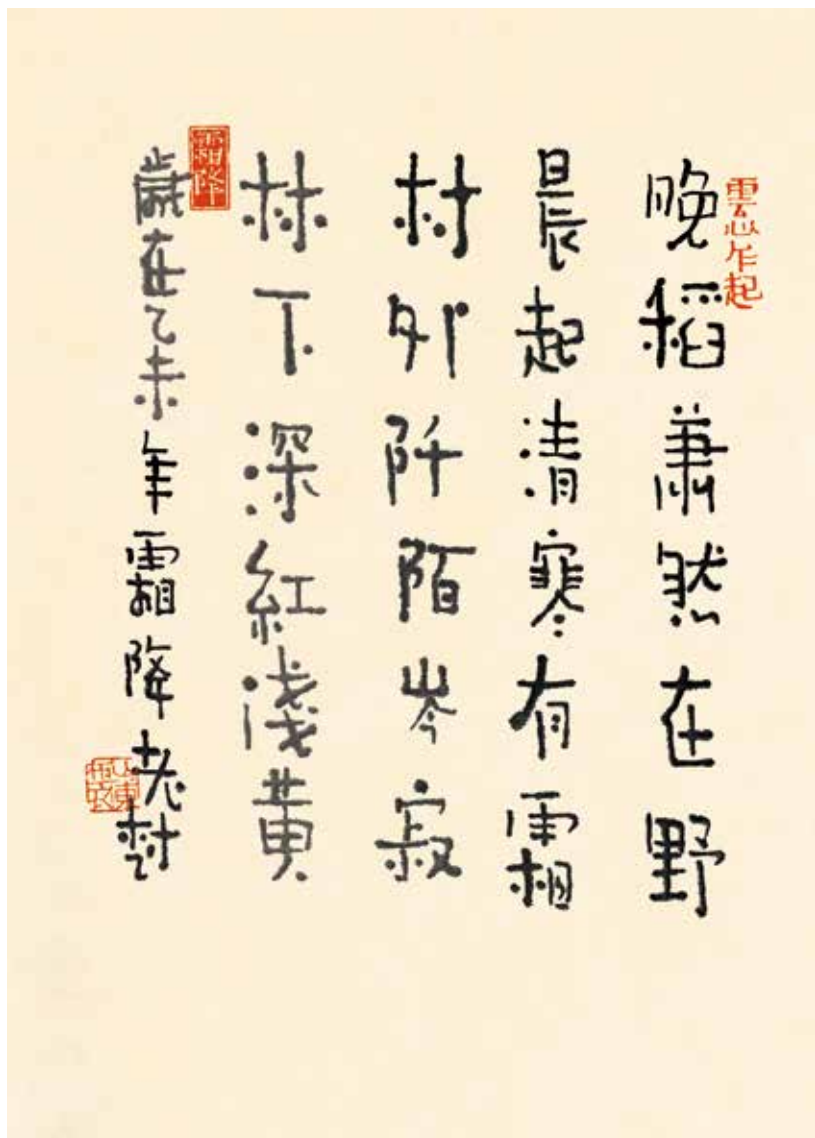 雲心乍起
晚稻肅然在野
晨起清寒有霜
村外阡陌岑寂
林下深紅淺黃
霜降
歲在乙未年霜降老樹